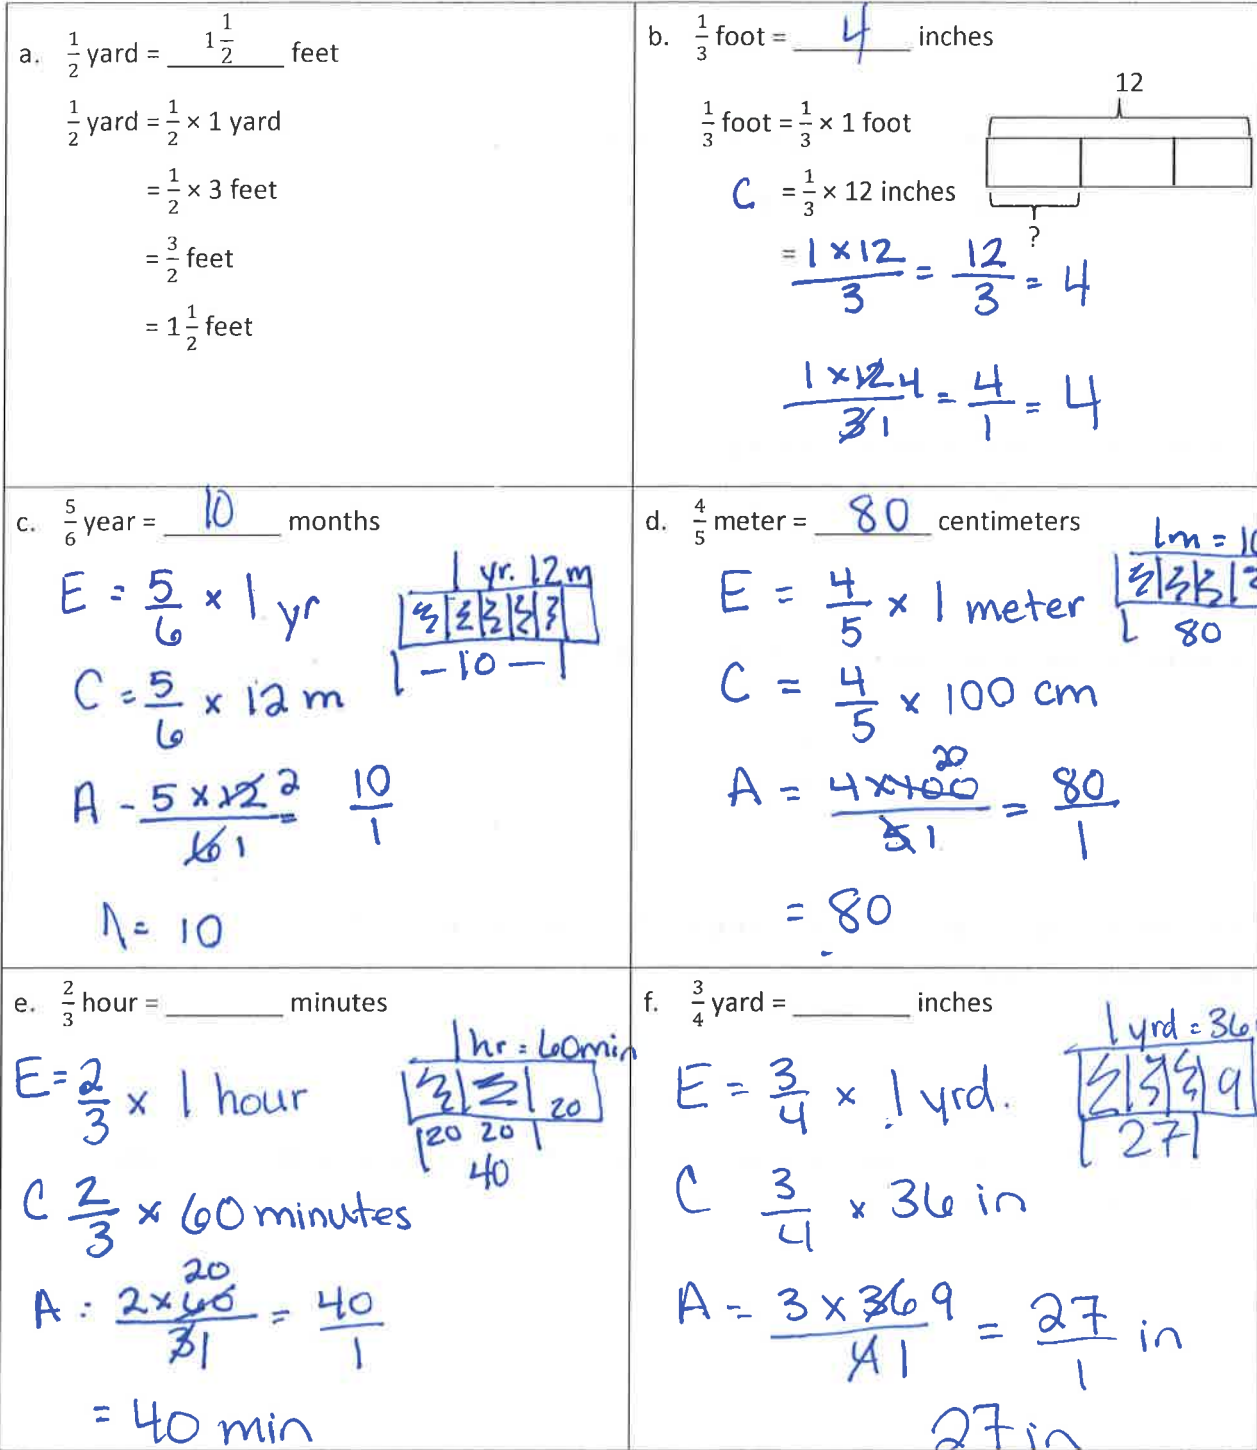 a. 1/2 yard = 1 1/2 feet
1/2 yard = 1/2 × 1 yard
= 1/2 × 3 feet
= 3/2 feet
= 1 1/2 feet
b. 1/3 foot = 4 inches
12
1/3 foot = 1/3 × 1 foot
C = 1/3 × 12 inches
?
= 1 × 12/3 = 12/3 = 4
1 × 12 4/3 1 = 4/1 = 4
c. 5/6 year = 10 months
1 yr. 12m
E = 5/6 × 1 yr
1 - 10 - 1
C = 5/6 × 12 m
A - 5 × 12 2/6 1 = 10/1
A = 10
d. 4/5 meter = 80 centimeters
1m = 10
E = 4/5 × 1 meter
80
C = 4/5 × 100 cm
20
A = 4 × 100/5 1 = 80/1
= 80
e. 2/3 hour = ____ minutes
1 hr = 60min
E = 2/3 × 1 hour
20
20 20
40
C 2/3 × 60 minutes
20
A : 2 × 60/3 1 = 40/1
= 40 min
f. 3/4 yard = ____ inches
1 yrd = 36
E = 3/4 × 1 yrd.
9
27
C 3/4 × 36 in
A = 3 × 36 9/4 1 = 27/1 in
27 in